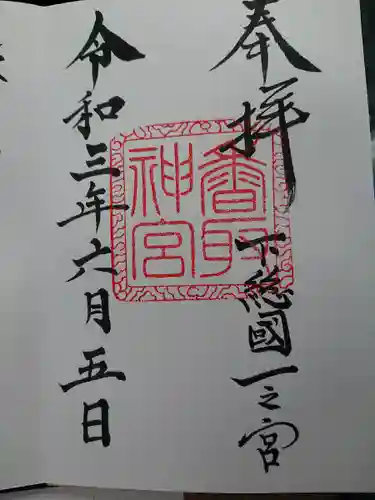 奉拝
下總國一之宮
香取
神宮
令和三年六月五日